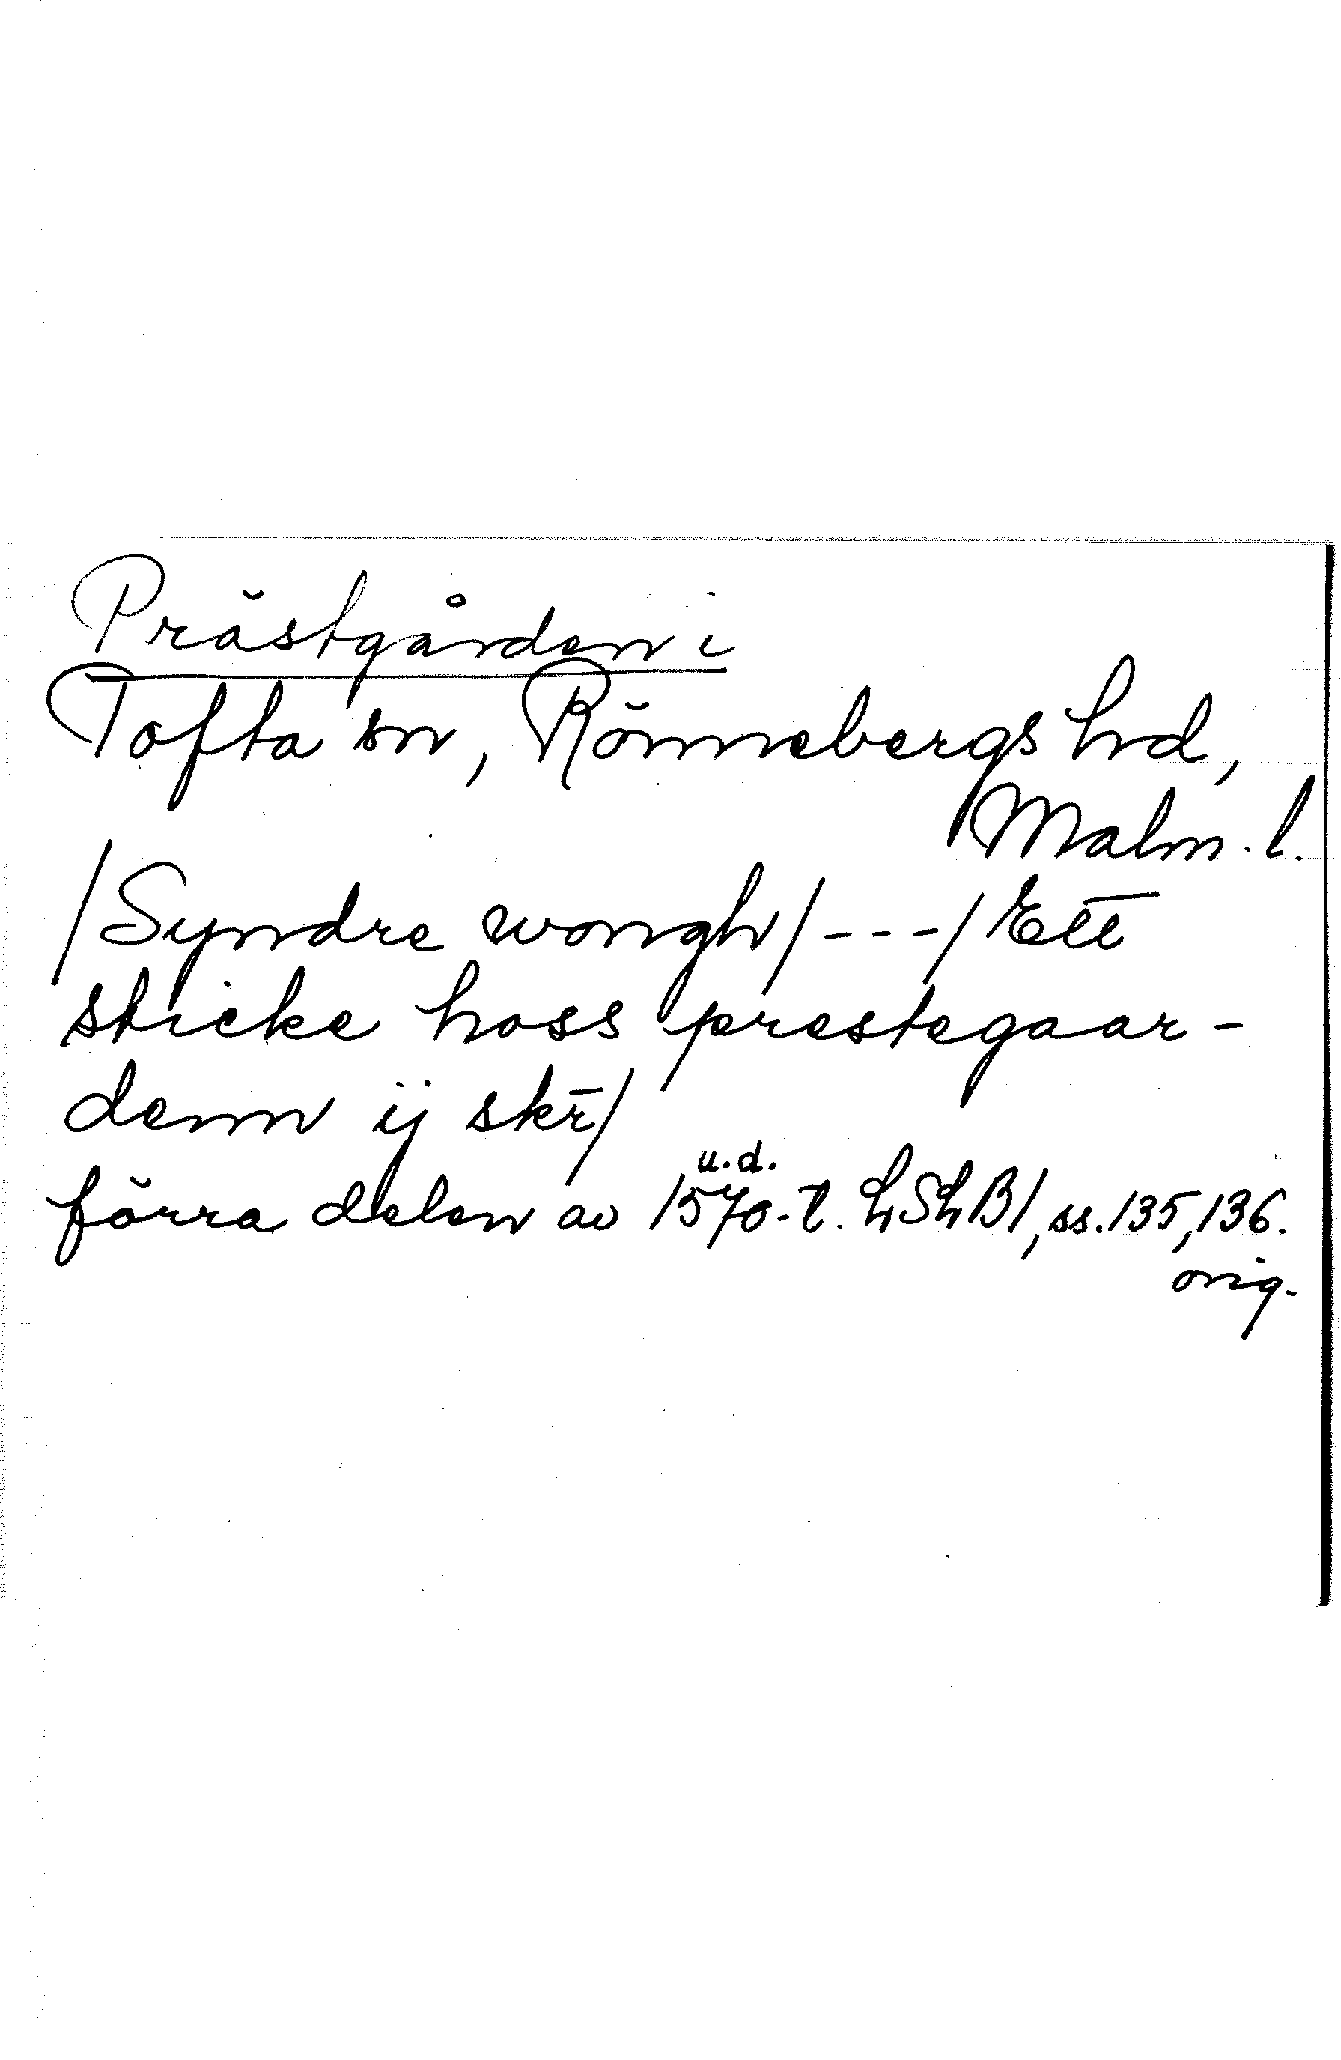 Prästgården i
Tofta sn, Rönnebergs hd,
Malm. l.
/Syndre wongh/---/Ett
sticke hoss prestegaar-
denn ij skr̄/
u.d.
förra delen av 1570-t. LSLB1, ss. 135, 136.
orig.